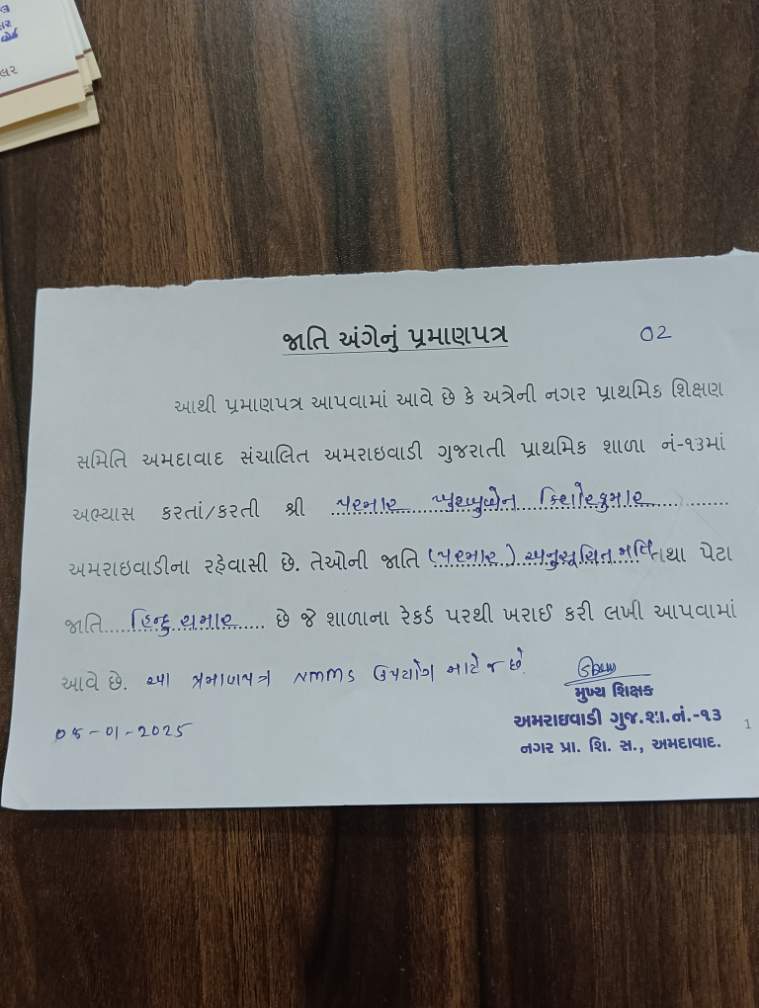 જાતિ અંગેનું પ્રમાણપત્ર
02
આથી પ્રમાણપત્ર આપવામાં આવે છે કે અત્રેની નગર પ્રાથમિક શિક્ષણ
સમિતિ અમદાવાદ સંચાલિત અમરાઇવાડી ગુજરાતી પ્રાથમિક શાળા નં-૧૩માં
અભ્યાસ કરતાં/કરતી શ્રી પરમાર ખુશ્બુબેન કિશોરકુમાર
અમરાઇવાડીના રહેવાસી છે. તેઓની જાતિ (પરમાર) અનુસૂચિત જાતિ તથા પેટા
જાતિ.....હિન્દુ ચમાર..... છે જે શાળાના રેકર્ડ પરથી ખરાઈ કરી લખી આપવામાં
આવે છે. આ પ્રમાણપત્ર NMMS ઉપયોગ માટે જ છે.
મુખ્ય શિક્ષક
અમરાઇવાડી ગુજ.શા.નં.-૧૩
નગર પ્રા. શિ. સ., અમદાવાદ.
-01-2025
1